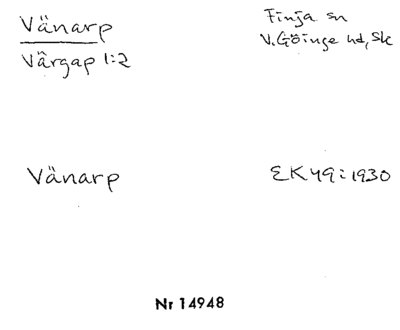 Vänarp
Finja sn
Vårgap 1:2
V. Göinge hd, Sk
Vänarp
EK 49:1930
Nr 14948